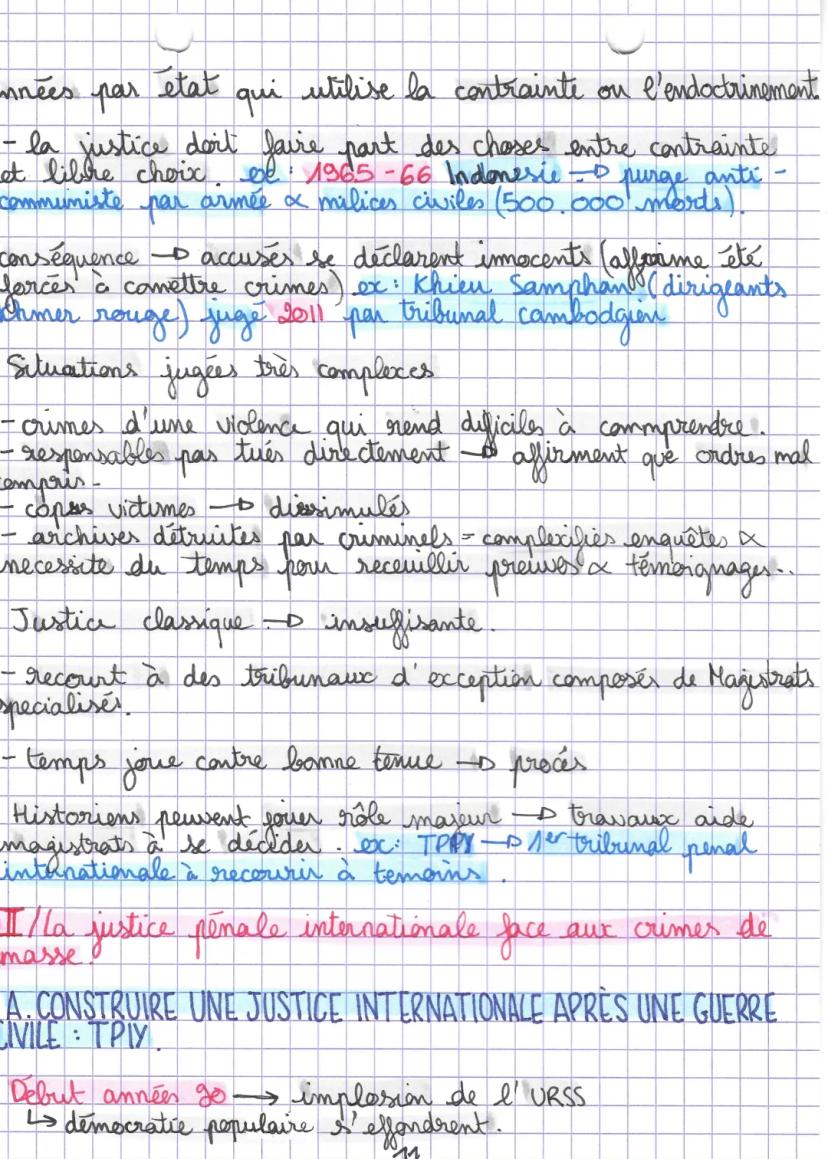 nnées par état qui utilise la contrainte ou l'endoctrinement
- la justice doit faire part des choses entre contrainte
et libre choix. ex : 1965-66 Indonesie → purge anti-
communiste par armée & milices civiles (500.000 mords).
conséquence → accusés se déclarent innocents (affirme été
forcés à comettre crimes) ex : Khieu Samphan (dirigeants
khmer rouge) jugé 2011 par tribunal cambodgien
Situations jugées très complexes
- crimes d'une violence qui rend dificiles à commprendre.
- responsables pas tués directement → affirment que ordres mal
compris-
- corps victimes → dissimulés
- archives détruites par criminels = complexifiés enquêtes &
necessite du temps pour receuillir preuves & témoignages..
Justice classique → insuffisante.
- recourt à des tribunaux d'exception composés de Magistrats
specialisés.
- temps joue contre bonne tenue → procés
Historiens peuvent jouer rôle majeur → travaux aide
magistrats à se décider. ex : TPIY → 1er tribunal penal
internationale à recourir à temoins.
II/La justice pénale internationale face aux crimes de
masse.
A. CONSTRUIRE UNE JUSTICE INTERNATIONALE APRÈS UNE GUERRE
CIVILE : TPIY.
Début années 90 → implosion de l'URSS
↳ démocratie populaire s'effondrent.
11